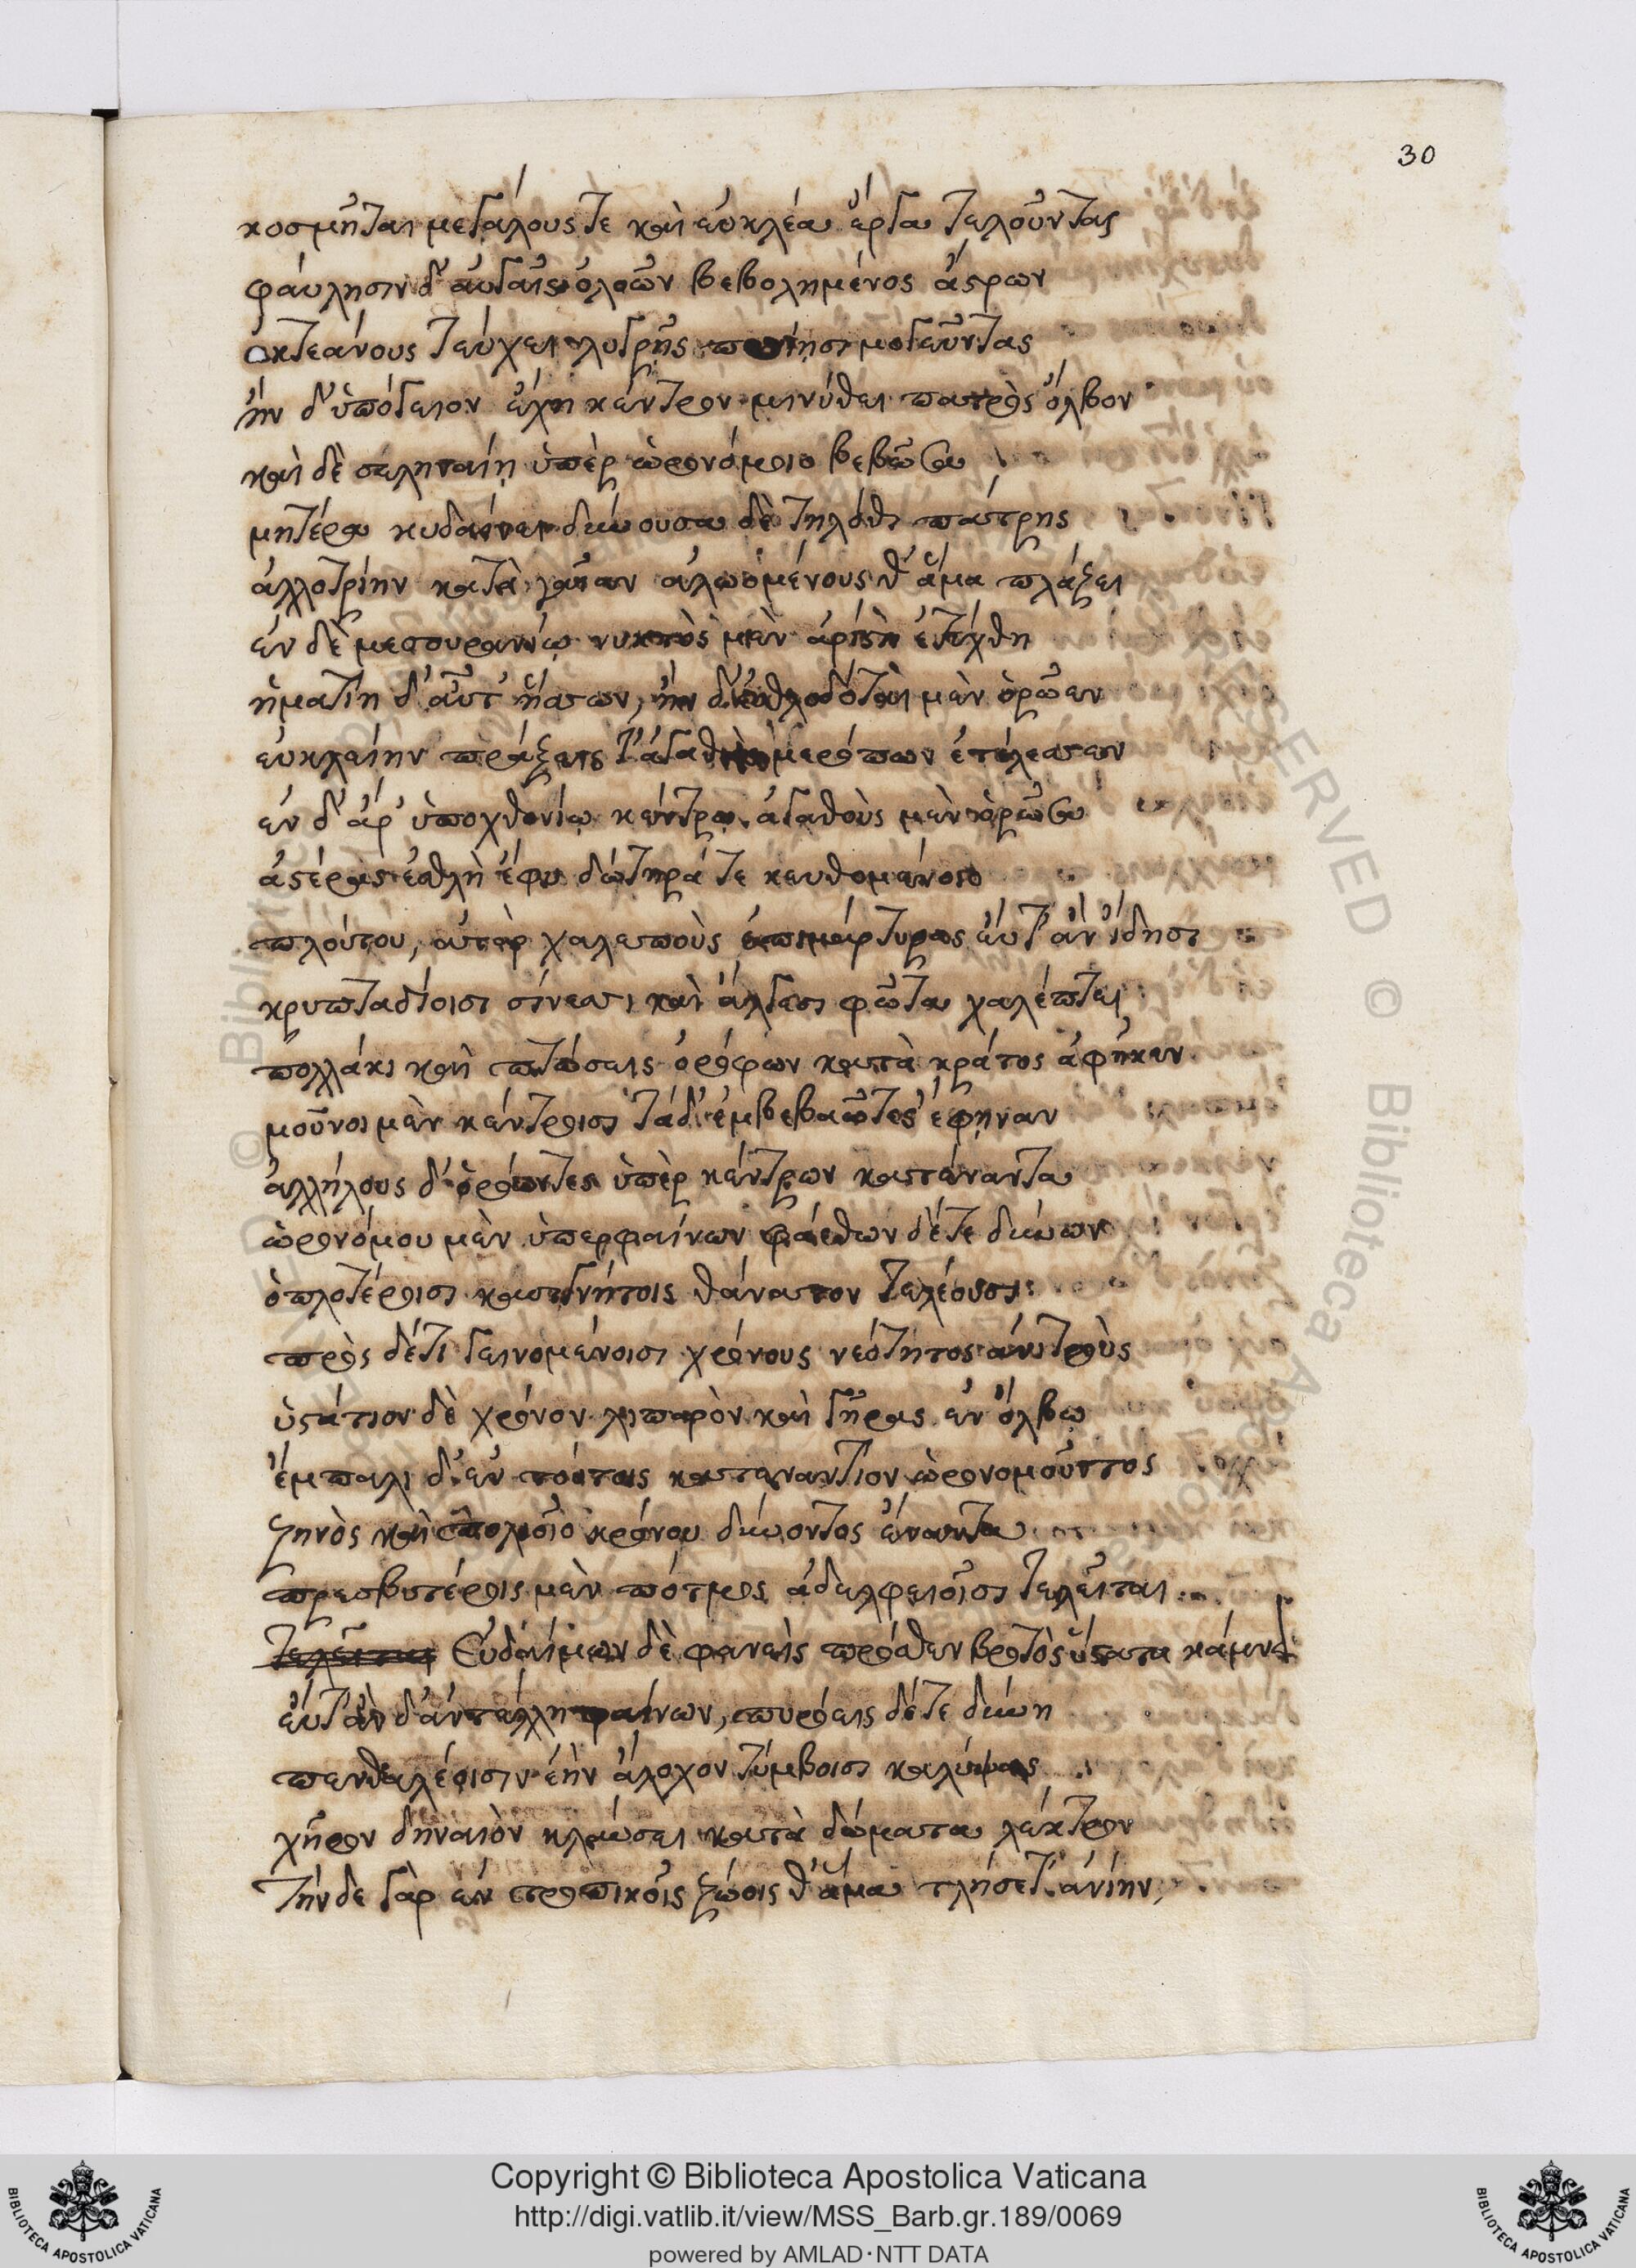 30
κοσμῆται μεγάλους τε καὶ εὐκλέα ἔργα τελοῦντας
φαύλησιν δ' αὐγαῖς ὀλοῶν βεβολημένος ἄστρων
ἀκτεάνους τεύχει λυγρῆς μογεῦντας
ἢν δ' ὑπόγειον ἔχη κέντρον μινύθει πατρὸς ὄλβον
καὶ δὲ σεληναίη ὑπὲρ ὡρονόμοιο βεβῶσα
μητέρα κυδαίνει δύουσα δὲ τηλόθι πάτρης
ἀλλοτρίην κατὰ γαῖαν ἀλωομένους θ' ἅμα πλάζει
ἐν δὲ μεσουρανίῳ νυκτὸς μὲν ἀρίστη ἐτύχθη
ἠματίη δ' αὖτ' ἥσσων, ἢν δ' ἐσθλοδόται μὲν ὁρῷεν
εὐκλείην πράξεις τ' μερόπων ἐτέλεσσεν
ἐν δ' ἄρ' ὑποχθονίῳ κέντρῳ ἀγαθοὺς μὲν ὁρῶσα
ἀστέρας ἐσθλὴ ἔφυ δώτηρά τε κευθομένοιο
πλούτου, αὐτὰρ χαλεποὺς ἐπιμάρτυρας εὖτ' ἂν ἴδησι
κρυπταδίοισι σίνεσι καὶ ἄλγεσι φῶτα χαλέπτει
πολλάκι καὶ πτώσεις ὀρόφων κατὰ κράτος ἀφῆκεν
μοῦνοι μὲν κέντροισι τάδ' ἐμβεβαῶτες ἔφηναν
ἀλλήλους δ' ὁρόωντες ὑπὲρ κέντρων κατέναντα
ὡρονόμου μὲν ὑπερφαίνων φαέθων δέ τε δύνων
ὁπλοτέροισι κασιγνήτοις θάνατον τελέουσι
πρὸς δέ τι γεινομένοισι χρόνους νεότητος ἀνιγροὺς
ὑστάτιον δὲ χρόνον λιπαρὸν καὶ γῆρας ἐν ὄλβῳ
ἔμπαλι δ' ἐν τούτοις κατεναντίον ὡρονομοῦντος
ζηνὸς καὶ κρόνου δύνοντος ἔναντα
πρεσβυτέροις μὲν πότμος ἀδελφειοῖσι τελεῖται
τελεῖται Εὐδαίμων δὲ φανεὶς πρόσθεν βροτὸς ὕστατα κάμνει
εὖτ' ἂν δ' ἀντέλλη φαίνων, πυρόεις δέ τε δύνη
πενθαλέοισιν ἑὴν ἄλοχον τύμβοισι καλύψας
χῆρον δηναιὸν κλαύσει κατὰ δώματα λέκτρον
τήνδε γὰρ ἐν τροπικοῖς ζώοις θ' ἅμα τλήσετ' ἀνίην,
Copyright © Biblioteca Apostolica Vaticana
http://digi.vatlib.it/view/MSS_Barb.gr.189/0069
powered by AMLAD·NTT DATA
BIBLIOTECA APOSTOLICA VATICANA
BIBLIOTECA APOSTOLICA VATICANA